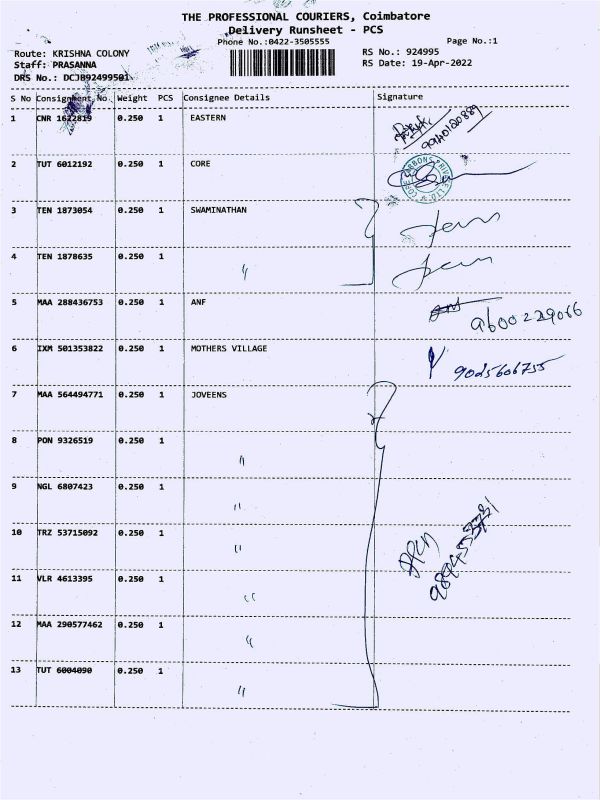 THE PROFESSIONAL COURIERS, Coimbatore
Delivery Runsheet - PCS
Phone No.:0422-3505555
Page No.:1
Route: KRISHNA COLONY
RS No.: 924995
Staff: PRASANNA
RS Date: 19-Apr-2022
DRS No.: DCJB92499501
S No Consignment No. Weight PCS Consignee Details Signature
1 CNR 1622819 0.250 1 EASTERN 9940120889
2 TUT 6012192 0.250 1 CORE
3 TEN 1873054 0.250 1 SWAMINATHAN
4 TEN 1878635 0.250 1 〃
5 MAA 288436753 0.250 1 ANF 9600229066
6 IXM 501353822 0.250 1 MOTHERS VILLAGE 9025606755
7 MAA 564494771 0.250 1 JOVEENS
8 PON 9326519 0.250 1 〃
9 NGL 6807423 0.250 1 〃
10 TRZ 53715092 0.250 1 〃
11 VLR 4613395 0.250 1 〃
12 MAA 290577462 0.250 1 〃
13 TUT 6004090 0.250 1 〃